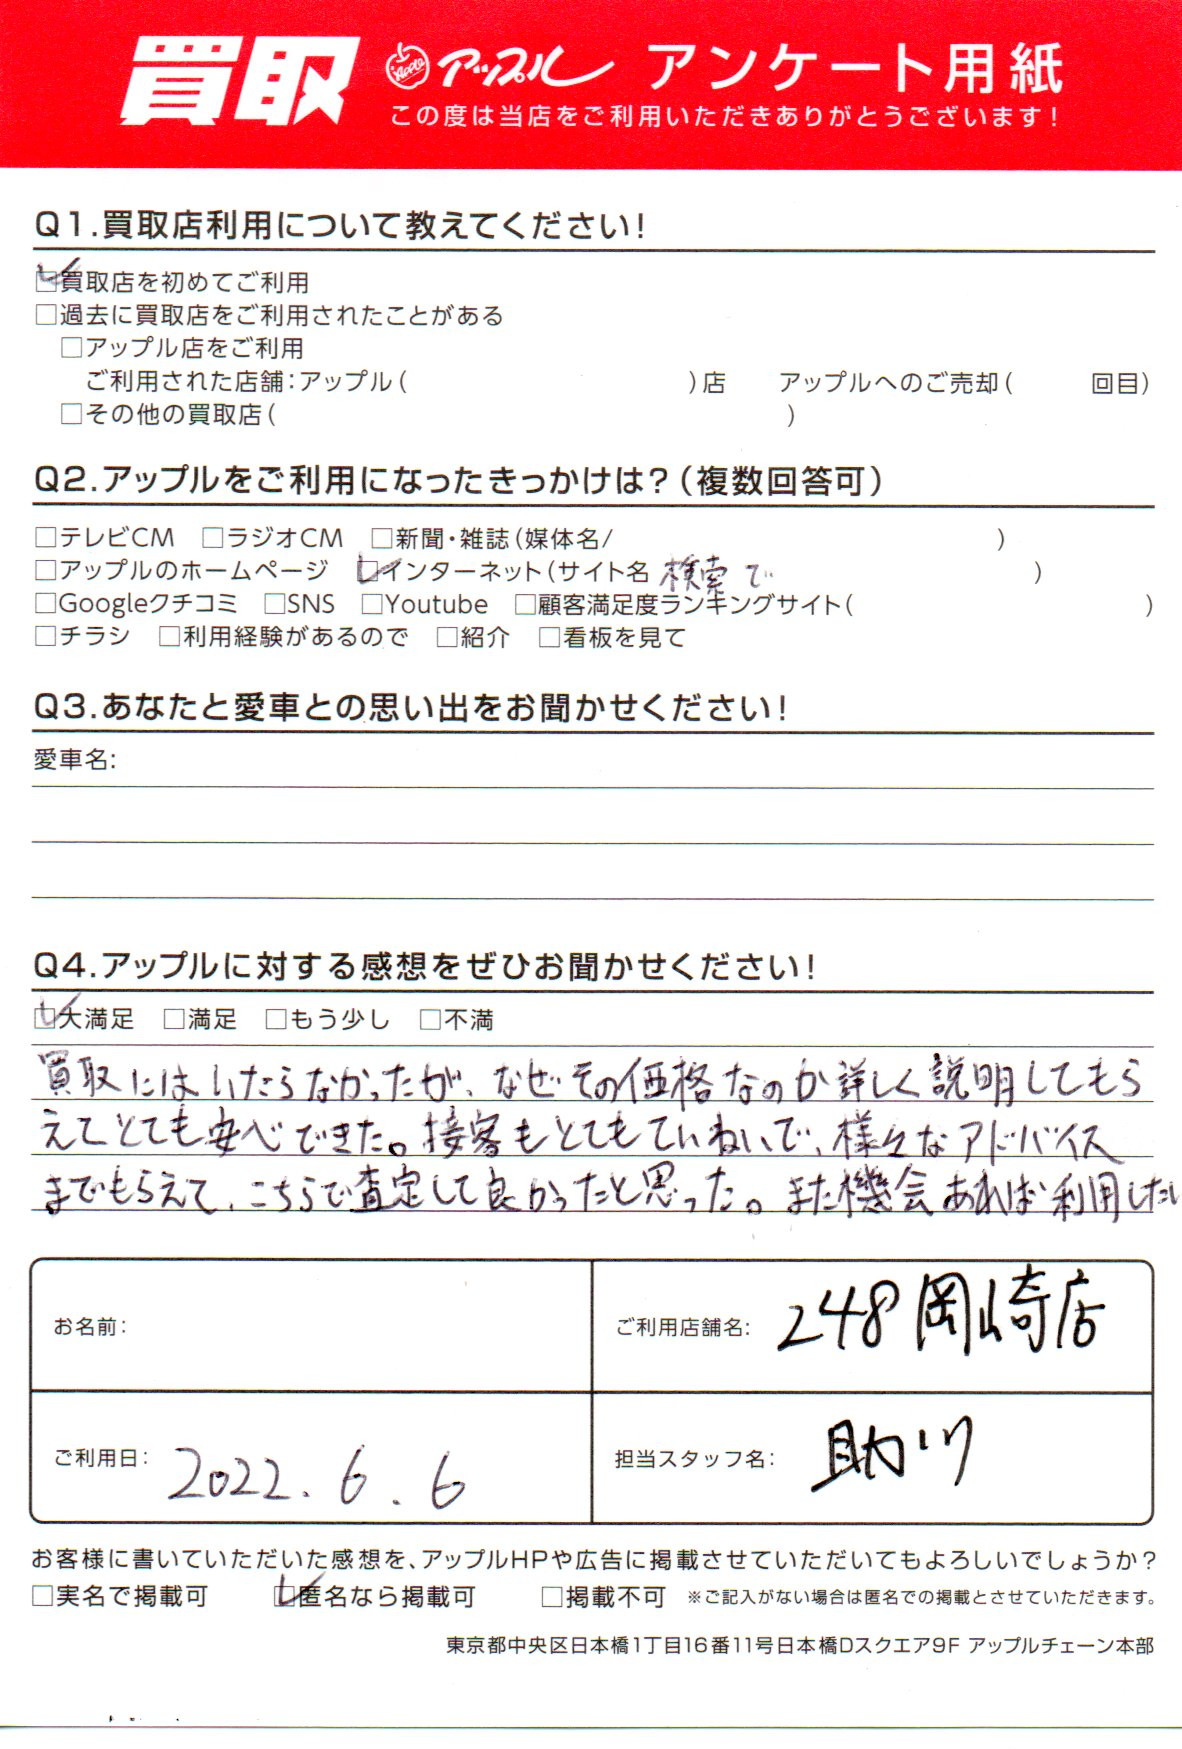 買取 Apple アップル アンケート用紙
この度は当店をご利用いただきありがとうございます!
Q1.買取店利用について教えてください!
☑買取店を初めてご利用
□過去に買取店をご利用されたことがある
□アップル店をご利用
ご利用された店舗:アップル( )店 アップルへのご売却( 回目)
□その他の買取店( )
Q2.アップルをご利用になったきっかけは?(複数回答可)
□テレビCM □ラジオCM □新聞・雑誌(媒体名/ )
□アップルのホームページ ☑インターネット(サイト名 検索で )
□Googleクチコミ □SNS □Youtube □顧客満足度ランキングサイト( )
□チラシ □利用経験があるので □紹介 □看板を見て
Q3.あなたと愛車との思い出をお聞かせください!
愛車名:
Q4.アップルに対する感想をぜひお聞かせください!
☑大満足 □満足 □もう少し □不満
買取にはいたらなかったが、なぜその価格なのか詳しく説明してもら
えてとても安心できた。接客もとてもていねいで、様々なアドバイス
までもらえて、こちらで査定して良かったと思った。また機会あれば利用したい
お名前:
ご利用店舗名: 248岡崎店
ご利用日: 2022.6.6
担当スタッフ名: 助川
お客様に書いていただいた感想を、アップルHPや広告に掲載させていただいてもよろしいでしょうか?
□実名で掲載可 ☑匿名なら掲載可 □掲載不可 ※ご記入がない場合は匿名での掲載とさせていただきます。
東京都中央区日本橋1丁目16番11号日本橋Dスクエア9F アップルチェーン本部